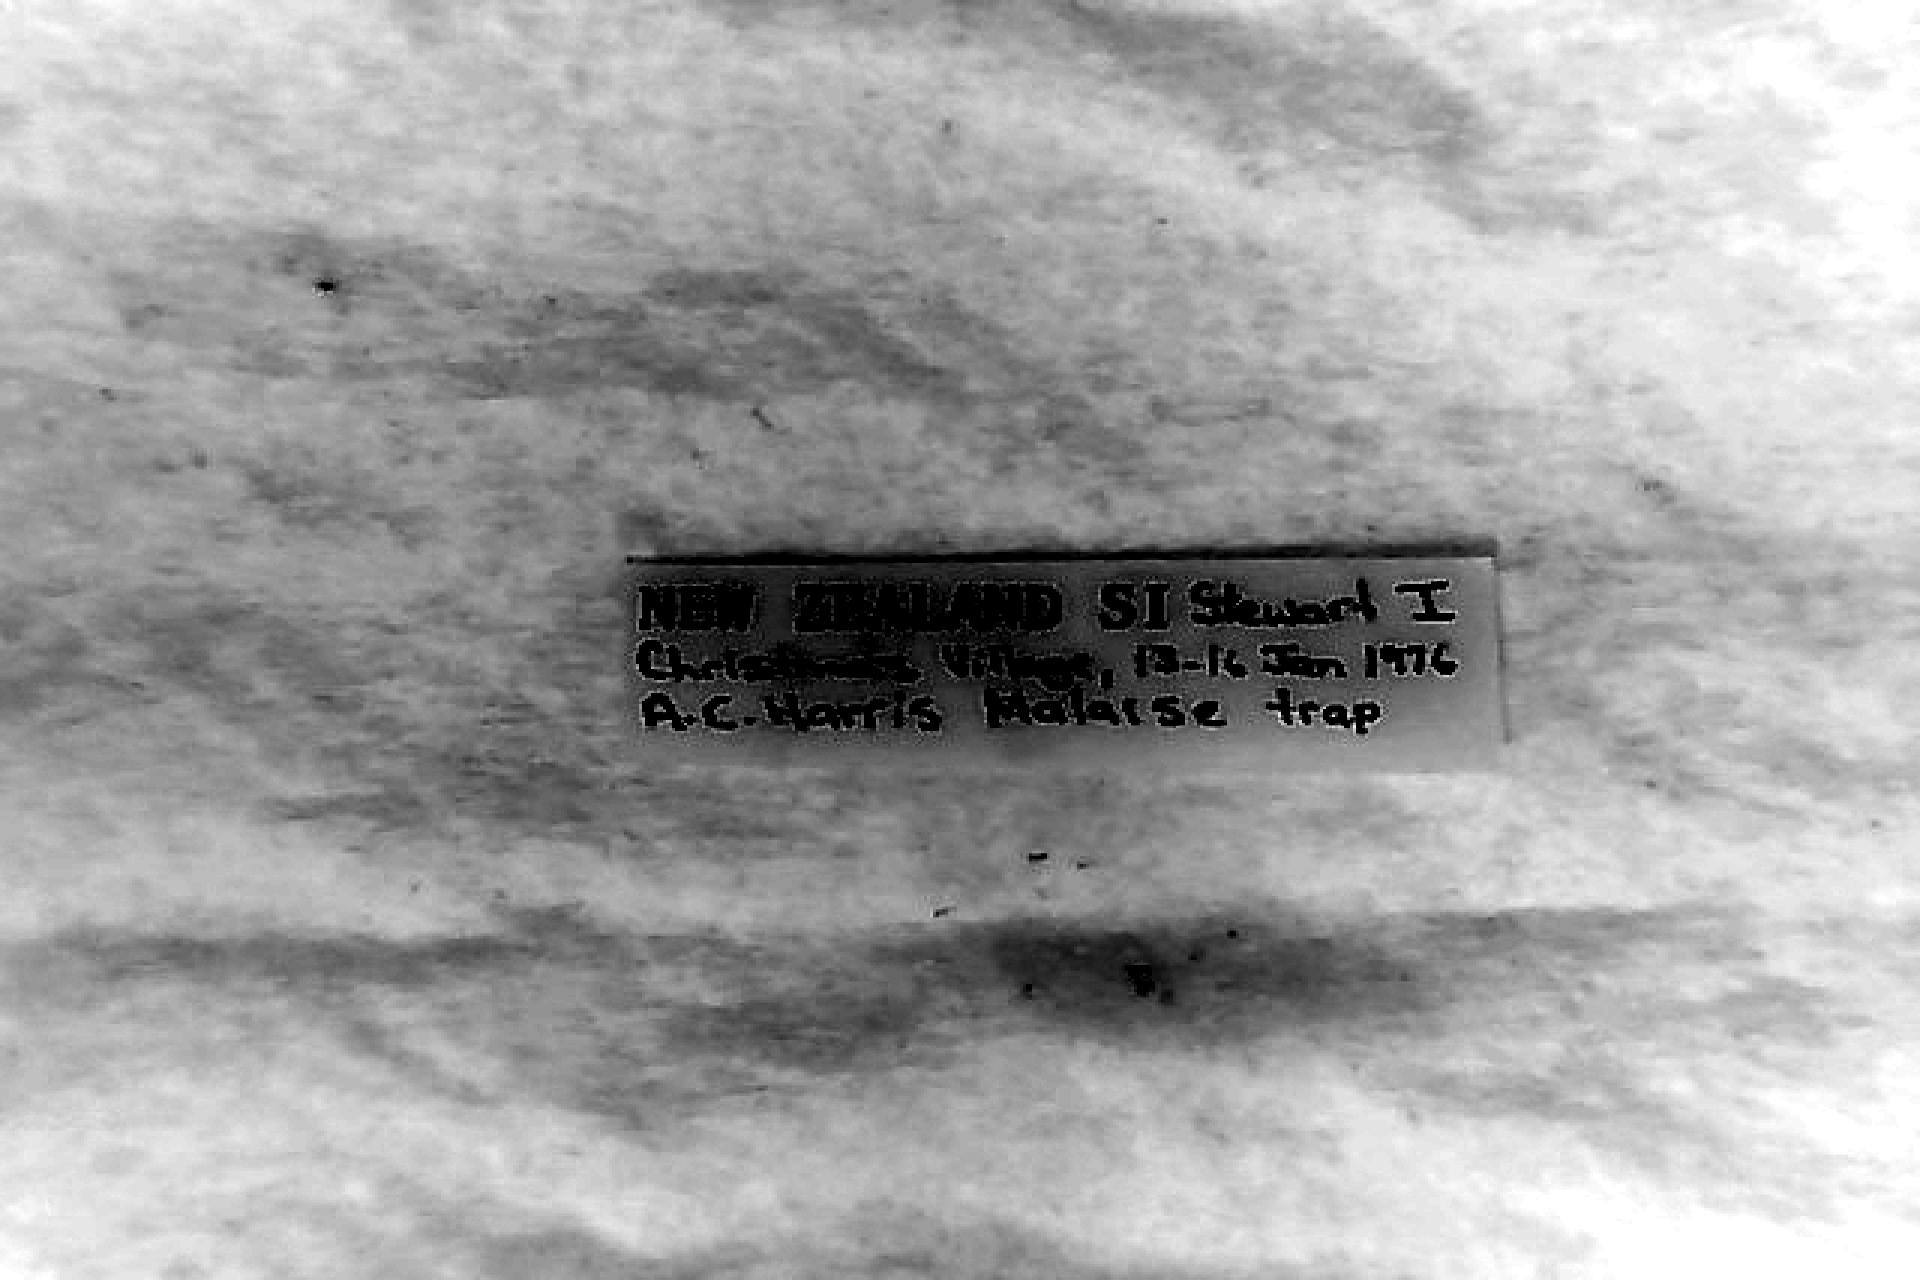 NEW ZEALAND SI Stewart I
Christmas Village, 13-16 Jan 1976
A.C. Harris Malaise trap